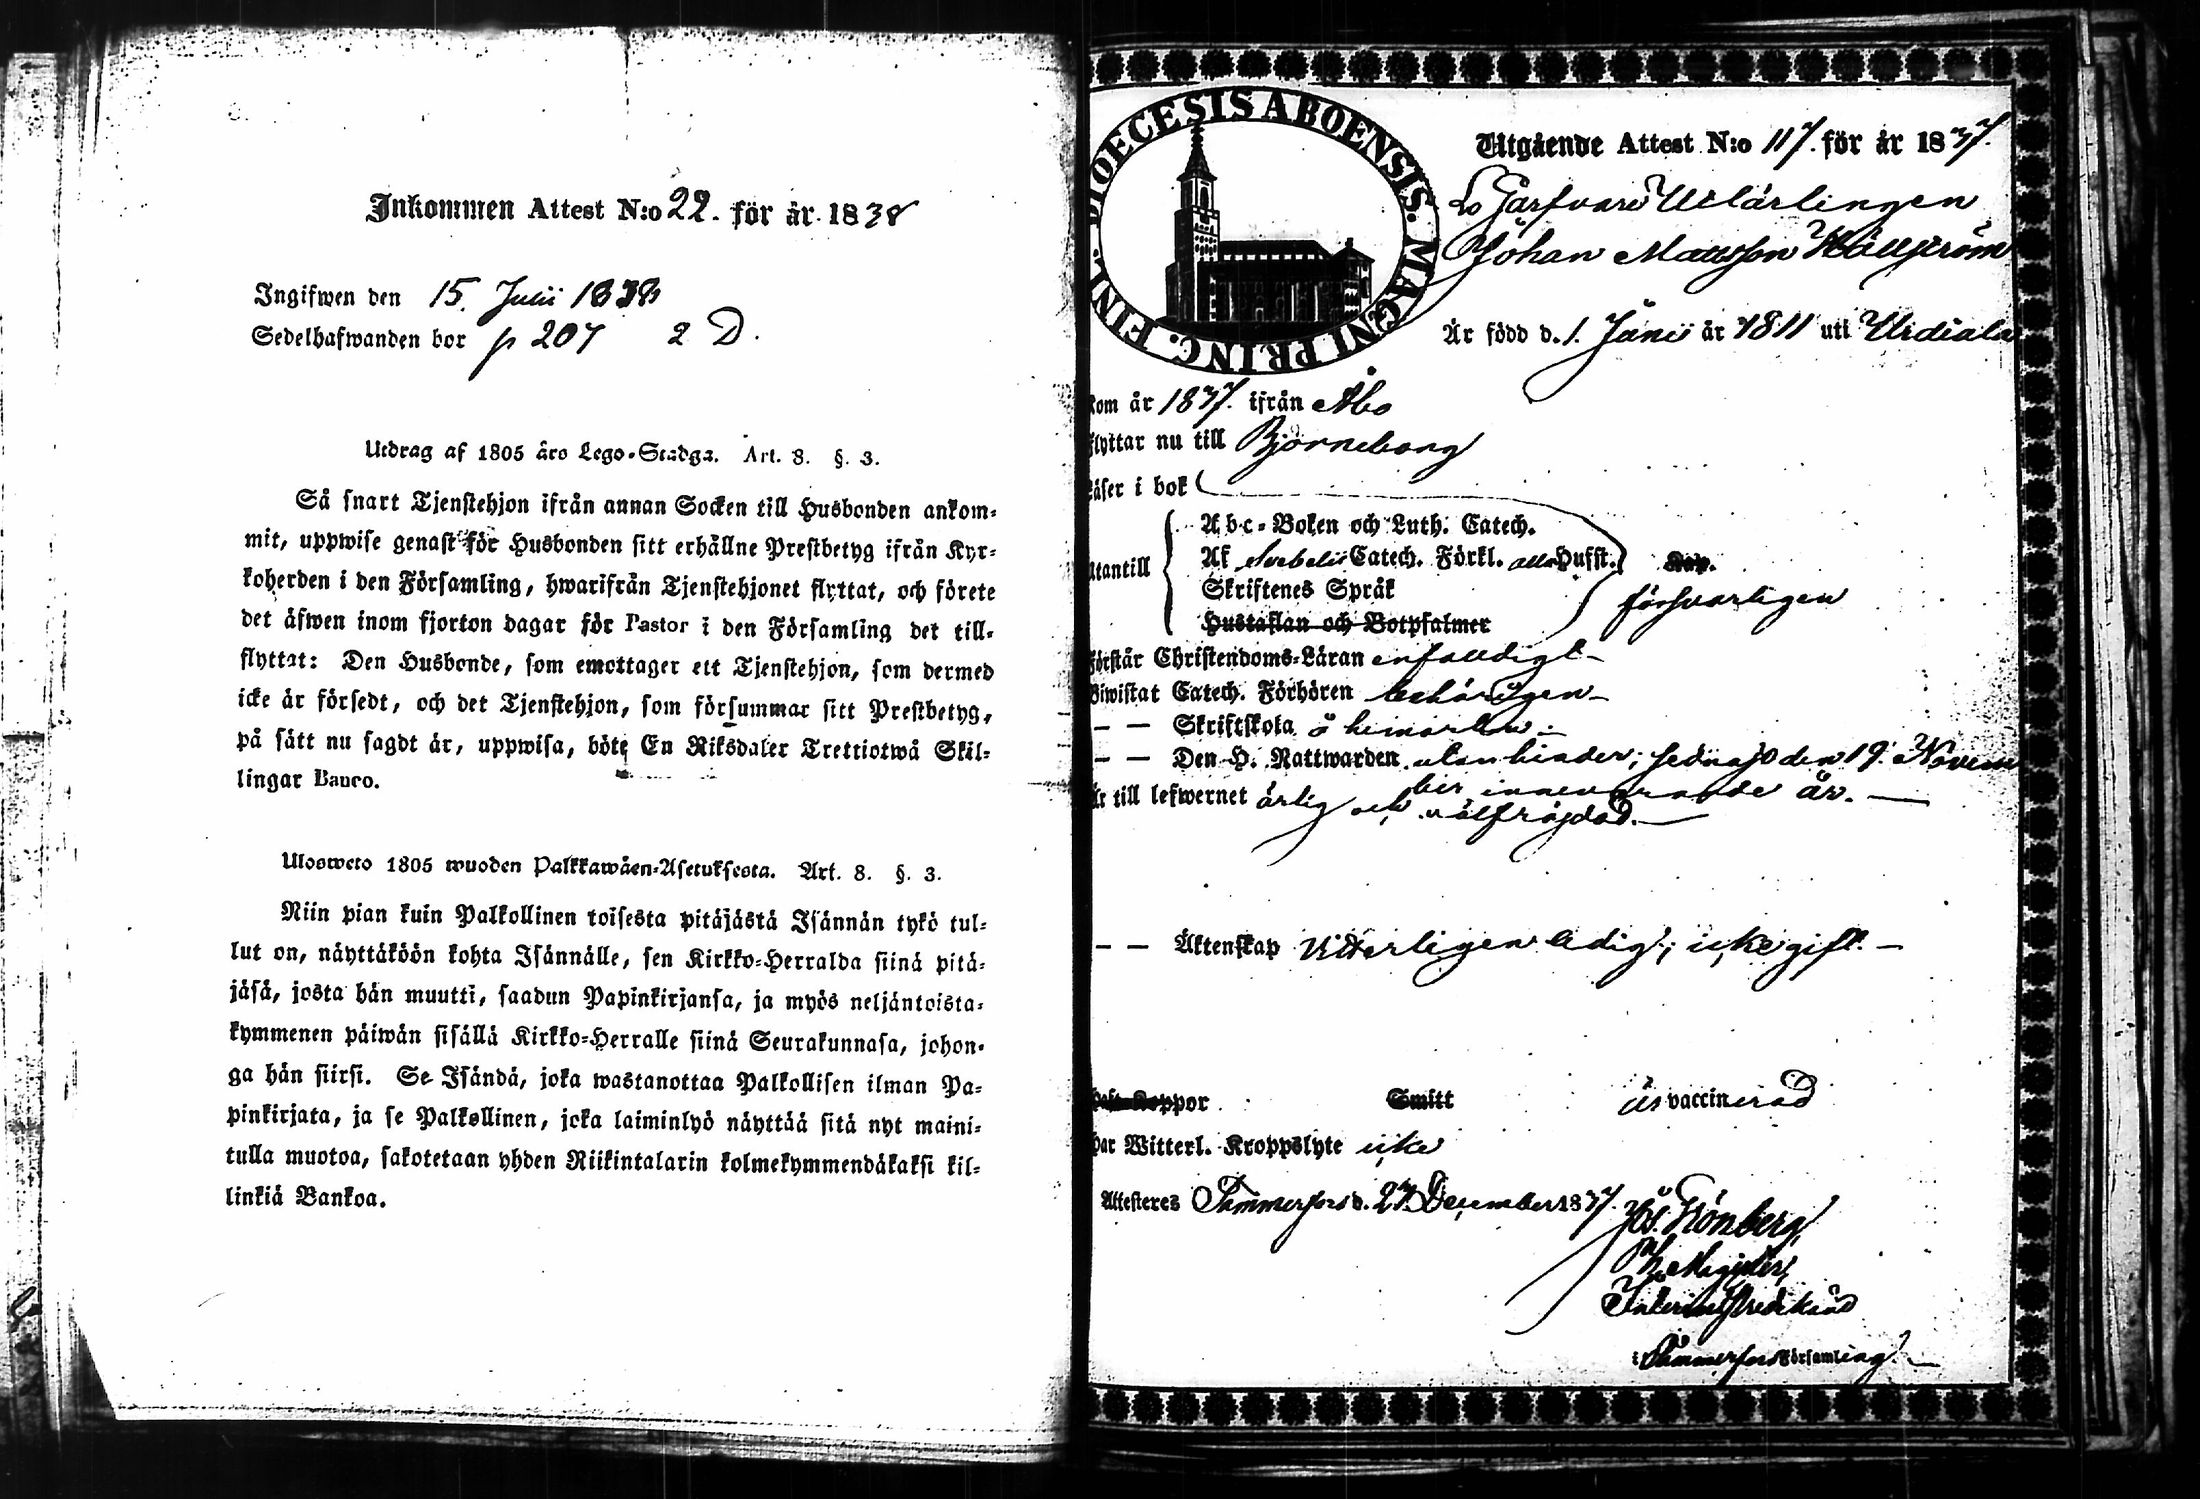 Inkommen Attest N:o 22. för år 1838
Ingifwen den 15. Julii 1838
Sedelhafwanden bor p 207 2 D.
Utdrag af 1805 års Lego-Stadga. Art. 8. §. 3.
Så snart Tjenstehjon ifrån annan Socken till Husbonden ankom-
mit, uppwise genast för Husbonden sitt erhållne Prestbetyg ifrån Kyr-
koherden i den Församling, hwarifrån Tjenstehjonet flyttat, och förete
det äfwen inom fjorton dagar för Pastor i den Församling det till-
flyttat: Den Husbonde, som emottager ett Tjenstehjon, som dermed
icke är försedt, och det Tjenstehjon, som försummar sitt Prestbetyg,
på sätt nu sagdt är, uppwisa, böte En Riksdaler Trettiotwå Skil-
lingar Banco.
Ulosweto 1805 wuoden Palkkawäen-Asetuksesta. Art. 8. §. 3.
Niin pian kuin Palkollinen toisesta pitäjästä Isännän tykö tul-
lut on, näyttäköön kohta Isännälle, sen Kirkko-Herralda siinä pitä-
jäsä, josta hän muutti, saadun Papinkirjansa, ja myös neljäntoista-
kymmenen päiwän sisällä Kirkko-Herralle siinä Seurakunnasa, johon-
ga hän siirsi. Se Isändä, joka wastanottaa Palkollisen ilman Pa-
pinkirjata, ja se Palkollinen, joka laiminlyö näyttää sitä nyt maini-
tulla muotoa, sakotetaan yhden Riikintalarin kolmekymmendäkaksi kil-
linkiä Bankoa.
DIOECESIS ABOENSIS. MAGNI PRINC. FINL.
Utgående Attest N:o 117. för år 1837.
Garfvare Utlärlingen
Johan Mattsson Hällström
Är född d. 1. Junii år 1811 uti Urdiala
Kom år 1837. ifrån Åbo
Flyttar nu till Björneborg
Läser i bok
Utantill
Abc-Boken och Luth. Catech.
Af Svebelii Catech. Förkl. alla Hufst.
Skriftenes Språk
Hustaflan och Botpsalmer
försvarligen
Förstår Christendoms-Läran enfalldigt
Biwistat Catech. Förhören behörigen
— — Skriftskola å hemorten
— — Den H. Nattwarden utan hinder; sednast den 19. Novem
ber innevarande år.
Är till lefwernet ärlig och välfrägdad.
— — Äktenskap Vitterligen ledig; icke gift.
Haft Koppor Smitt är vaccinerad
Har Witterl. Kroppslyte icke
Attesteres Tammerfors d. 27. December 1837.
Jos. Grönberg,
Ph. Magister,
i Tammerfors Församling.